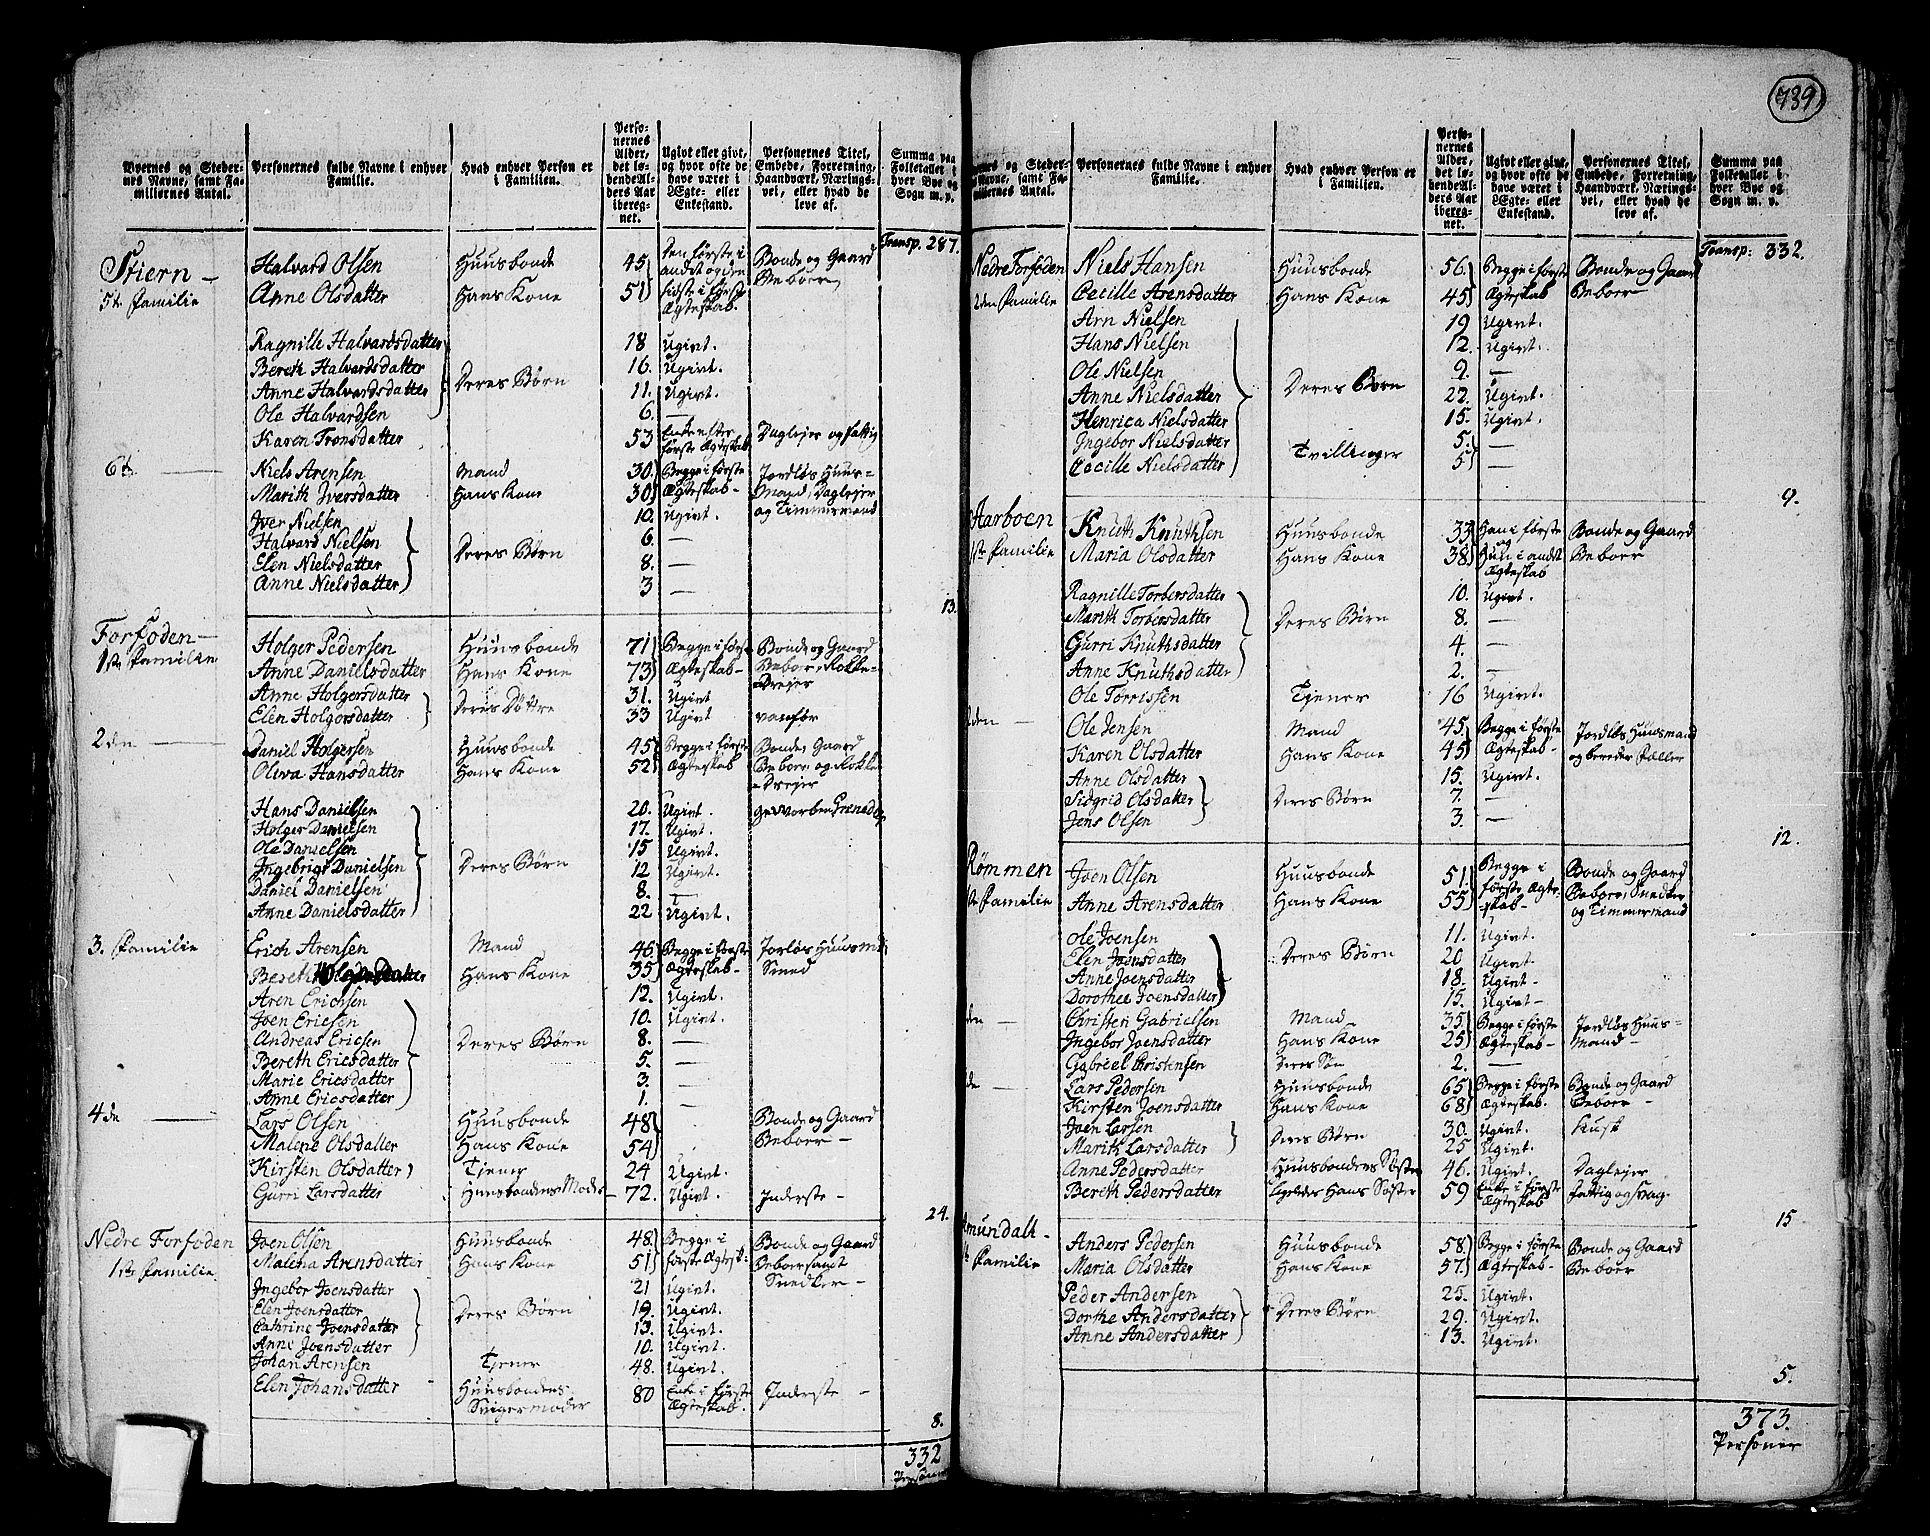 739
Byernes og Stedernes Navne, samt Familiernes Antal.
Personernes fulde Navne i enhver Familie.
Hvad enhver Person er i Familien.
Personernes Alder, det løbendeAlders Aar iberegnet.
Ugivt eller givt, og hvor ofte de have været i Ægte- eller Enkestand.
Personernes Titel, Embede, Forretning, Haandværk, Næringsvei, eller hvad de leve af.
Summa paa Folketallet i hver Bye og Sogn m. v.
Transp. 287.
Stiern – Halvard Olsen Huusbonde 45 Den første i andet og den sidste i første Ægteskab. Bonde og Gaard Beboer
5te Familie Anne Olsdatter Hans Kone 51
Ragnille Halvardsdatter 18 Ugivt.
Bereth Halvardsdatter 16. Ugivt.
Anne Halvardsdatter Deres Børn 11. Ugivt.
Ole Halvardsen 6. —
Karen Tronsdatter 53 Enke efter første Ægteskab Daglejer og fattig
6te — Niels Arensen Mand 30. Begge i første Jordløs Huus-
Marith Iversdatter Hans Kone 30 Ægteskab – Mand, Daglejer
Iver Nielsen 10. Ugivt. og Timmermand
Halvard Nielsen 6. —
Elen Nielsdatter Deres Børn 8. —
Anne Nielsdatter 3 —
13.
Forfoden –
1ste Familie Holger Pedersen Huusbonde 71 Begge i første Bonde og Gaard
Anne Danielsdatter Hans Kone 73 Ægteskab – Beboer, Rokke-
Anne Holgersdatter Deres Døttre 31. Ugivt Drejer
Elen Holgersdatter 33 Ugivt vanfør
2den — Daniel Holgersen Huusbonde 45 Begge i første Bonde, Gaard
Oliva Hansdatter Hans Kone 52 Ægteskab Beboer og Rokke-
Drejer
Hans Danielsen 20. Ugivt. Gevorben Grenader
Holger Danielsen 17. Ugivt.
Ole Danielsen 15 Ugivt.
Ingebrigt Danielsen Deres Børn 12 Ugivt.
Daniel Danielsen 8. —
Anne Danielsdatter 22 Ugivt.
3. Familie Erich Arensen Mand 46. Begge i første Jorløs Huusmd
Bereth Holgersdatter Hans Kone 35 Ægteskab – Smed
Aren Erichsen 12. Ugivt.
Joen Ericsen 10. Ugivt.
Andreas Ericsen Deres Børn 8. —
Bereth Ericsdatter 5. —
Marie Ericsdatter 3. —
Anne Ericsdatter 1. —
4de — Lars Olsen Huusbonde 48 Bonde og Gaard
Malene Olsdatter Hans Kone 54 Beboer –
Kirsten Olsdatter Tjener 24 Ugivt.
Gurri Larsdatter Huusbondens Moder 72. Ugivt. Inderste –
24.
Nedre Forfoden Joen Olsen Huusbonde 48. Begge i Bonde og Gaard
1ste Familie Malena Arensdatter Hans Kone 51 første Ægtesk: Beboer samt
Ingebor Joensdatter 21 Ugivt. Snedker –
Elen Joensdatter Deres Børn 19. Ugivt.
Cathrine Joensdatter 13. Ugivt.
Anne Joensdatter 10. Ugivt.
Johan Arensen Tjener 48. Ugivt.
Elen Johansdatter Huusbondens Svigermoder 80 Enke i første Ægteskab. Inderste –
8.
332
Personer
Byernes og Stedernes Navne, samt Familiernes Antal.
Personernes fulde Navne i enhver Familie.
Hvad enhver Person er i Familien.
Personernes Alder, det løbendeAlders Aar iberegnet.
Ugivt eller givt, og hvor ofte de have været i Ægte- eller Enkestand.
Personernes Titel, Embede, Forretning, Haandværk, Næringsvei, eller hvad de leve af.
Summa paa Folketallet i hver Bye og Sogn m. v.
Transp: 332.
Nedre Forfoden Niels Hansen Huusbonde 56. Begge i første Bonde og Gaard
2den Familie Cecille Arensdatter Hans Kone 45 Ægteskab Beboer
Arn Nielsen 19 Ugivt.
Hans Nielsen 12. Ugivt.
Ole Nielsen 9. —
Anne Nielsdatter Deres Børn 22. Ugivt.
Henrica Nielsdatter 15. Ugivt.
Ingebor Nielsdatter Tvillinger 5. —
Cecille Nielsdatter 5 —
9.
Aarboen Knuth Knuthsen Huusbonde 33 Han i første Bonde og Gaard
1ste Familie Maria Olsdatter Hans Kone 38 og Hun i andet Ægteskab Beboer
Ragnille Torbersdatter 10. Ugivt.
Marith Torbersdatter Deres Børn 8. —
Gurri Knuthsdatter 4. —
Anne Knuthsdatter 2. —
Ole Torrissen Tjener 16 Ugivt.
2den — Ole Jensen Mand 45. Begge i første Jordløs Huusmand
Karen Olsdatter Hans Kone 45 Ægteskab – og bereder Fæller
Anne Olsdatter 15. Ugivt.
Sidgrid Olsdatter Deres Børn 7. —
Jens Olsen 3. —
12.
Rømmen Joen Olsen Huusbonde 51. Begge i Bonde og Gaard
Familie Anne Arensdatter Hans Kone 55 første Ægteskab – Beboer, Snedker og Timmermand
Ole Joensen 11. Ugivt.
Elen Joensdatter Deres Børn 20 Ugivt.
Anne Joensdatter 18. Ugivt –
Dorothee Joensdatter 15. Ugivt –
den — Christen Gabrielsen Mand 35 Begge i første Jordløs Huus-
Ingebor Joensdatter Hans Kone 25 Ægteskab – Mand –
Gabriel Christensen Deres Søn 2. —
de — Lars Pedersen Huusbonde 65 Begge i første Bonde og Gaard
Kirsten Joensdatter Hans Kone 68 Ægteskab. Beboer –
Joen Larsen Deres Børn 30. Ugivt. Kusk
Marith Larsdatter 25 Ugivt.
Anne Pedersdatter Huusbondens Søster 46. Ugivt. Daglejer
Bereth Pedersdatter Hans Søster 59 Enke i første Ægteskab fattig og svag.
15
mundalt – Anders Pedersen Huusbonde 58 Begge i første Bonde og Gaard
Familie Maria Olsdatter Hans Kone 57. Ægteskab – Beboer
Peder Andersen 25. Ugivt.
Dorthe Andersdatter Deres Børn 29. Ugivt.
Anne Andersdatter 13. Ugivt.
5.
373.
Personer